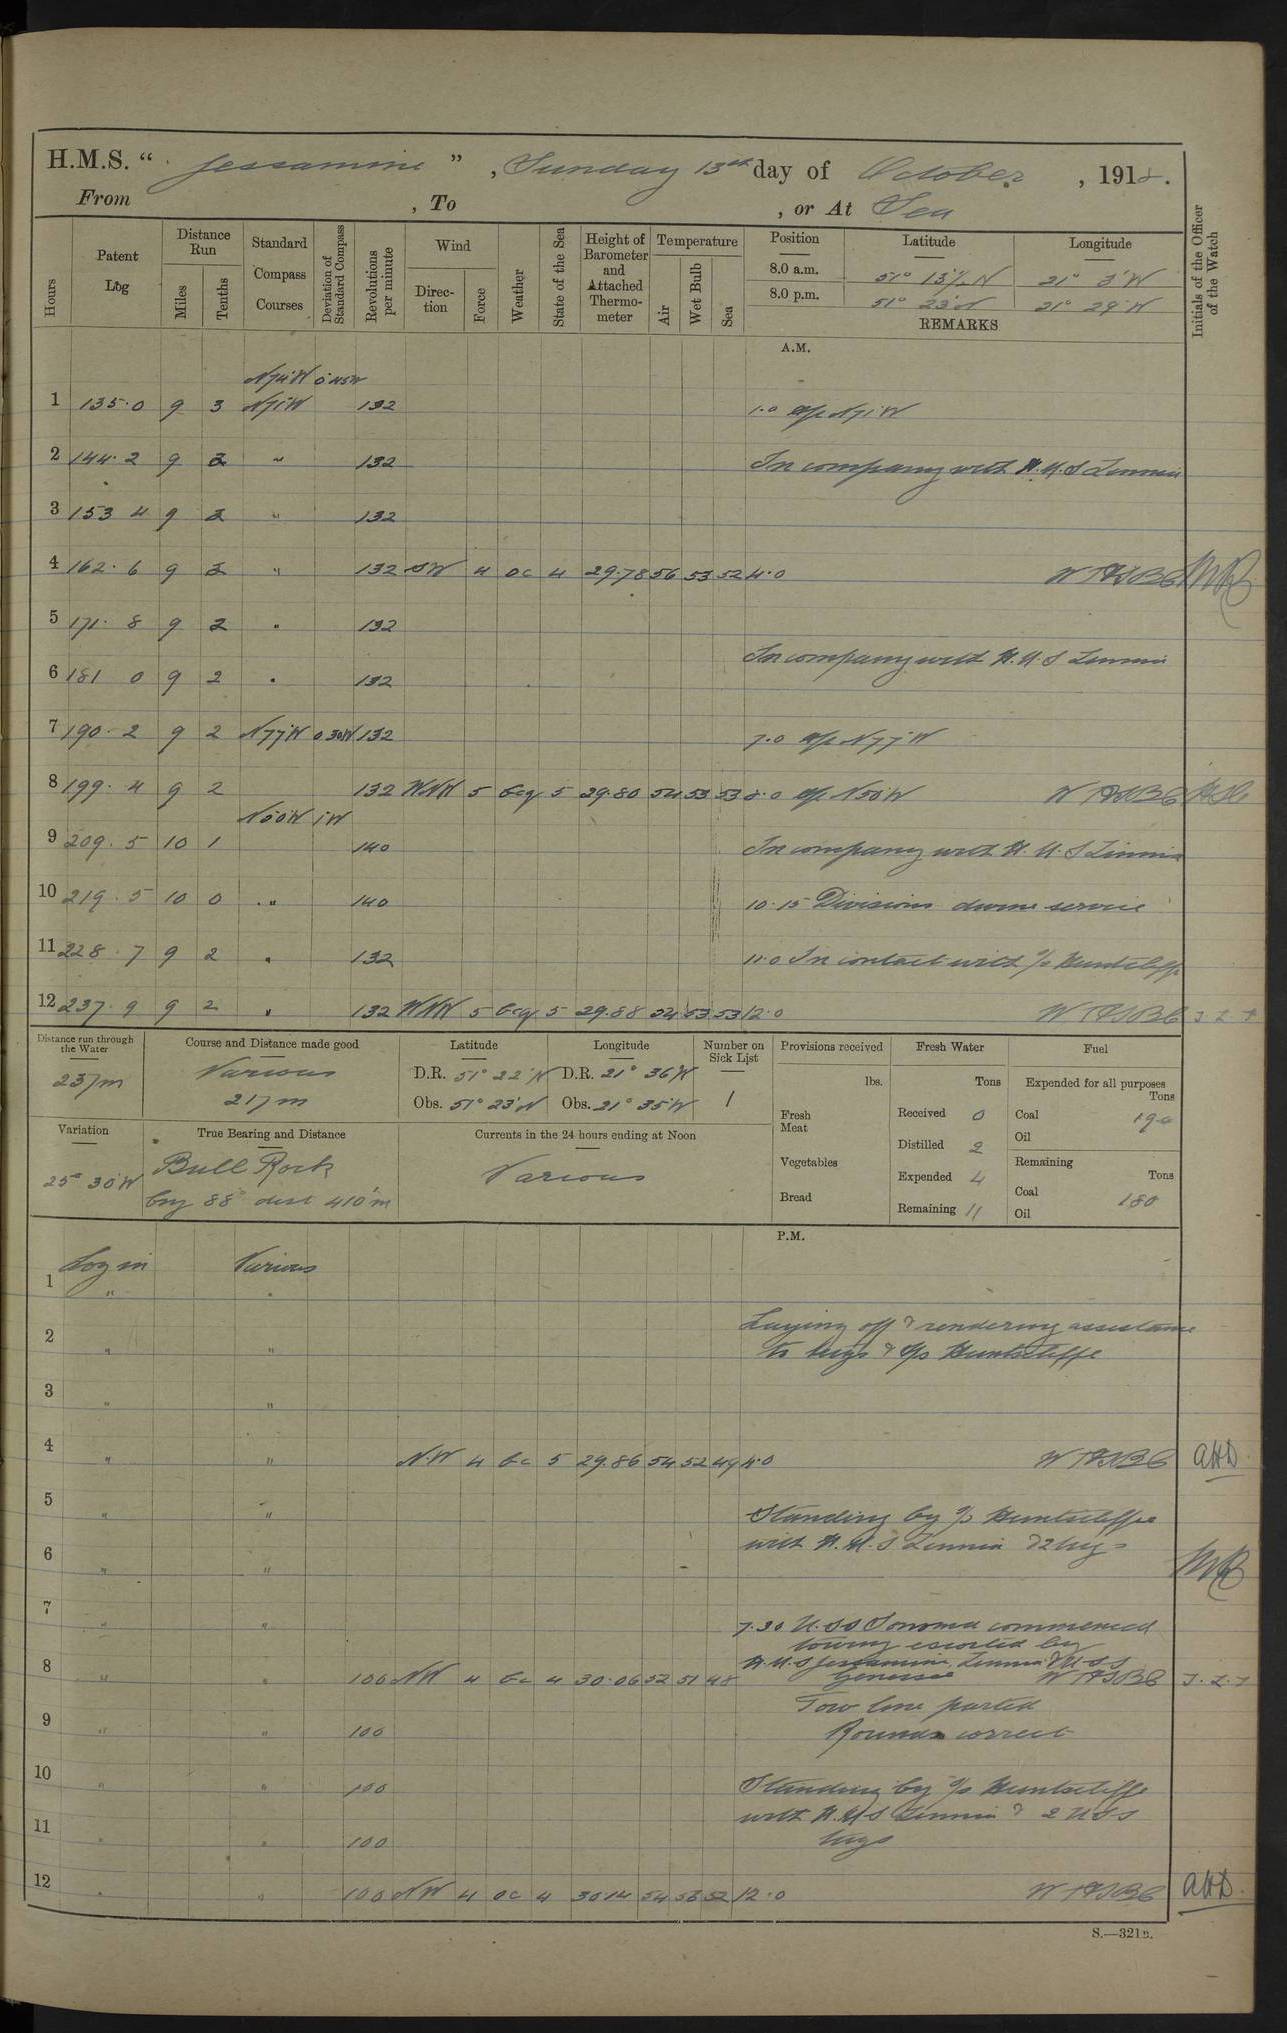 H.M.S. " Jessamine " , Sunday 13th day of October , 1918.
From , To , or At Sea
Hours
Patent Log
Distance Run
Miles
Tenths
Standard Compass Courses
Deviation of Standard Compass
Revolutions per minute
Wind
Direction
Force
Weather
State of the Sea
Height of Barometer and Attached Thermometer
Temperature
Air
Wet Bulb
Sea
Position Latitude Longitude
8.0 a.m. 51° 13½' N 21° 3' W
8.0 p.m. 51° 23' N 21° 29' W
REMARKS
Initials of the Officer of the Watch
A.M.
N74W 0.45W
1 135.0 9 3 N71W 132 1.0 a/c N71W
2 144.2 9 2 " 132 In company with H.M.S Zinnia
3 153 4 9 2 " 132
4 162.6 9 2 " 132 SW 4 oc 4 29.78 56 53 52 4.0 WTHSBC
5 171.8 9 2 " 132
In company with H.M.S Zinnia
6 181 0 9 2 " 132
7 190.2 9 2 N77W 0 30W 132 7.0 a/c N77W
8 199.4 9 2 132 WNW 5 bcq 5 29.80 54 53 53 8.0 a/c N50W WTHSBC
9 209.5 10 1 140 In company with H.M.S Zinnia
10 219.5 10 0 " 140 10.15 Divisions divine service
11 228.7 9 2 " 132 11.0 In contact with s/s Huntscliffe
12 237.9 9 2 " 132 WNW 5 bcq 5 29.88 54 53 53 12.0 WTHSBC
Distance run through the Water
237m
Course and Distance made good
Various
217m
Latitude
D.R. 51° 22' N
Obs. 51° 23' N
Longitude
D.R. 21° 36' W
Obs. 21° 35' W
Number on Sick List
1
Variation
25° 30' W
True Bearing and Distance
Bull Rock
brg 88° dist 410'm
Currents in the 24 hours ending at Noon
Various
Provisions received
lbs.
Fresh Meat
Vegetables
Bread
Fresh Water
Tons
Received 0
Distilled 2
Expended 4
Remaining 11
Fuel
Expended for all purposes
Tons
Coal
Oil
Remaining
Tons
Coal 180
Oil
P.M.
Log in Various
1 " "
Laying off & rendering assistance
2 " " to tugs & s/s Huntscliffe
3 " "
4 " " N.W 4 bc 5 29.86 54 52 49 4.0 WTHSBC AHD
5 " " Standing by s/s Huntscliffe
with H.M.S Zinnia & 2 tugs
6 " "
7 " " 7.30 U.S.S Sonoma commenced
towing escorted by
H.M.S Jessamine, Zinnia & U.S.S
8 " " 100 NW 4 bc 4 30.06 52 51 48 Genesee WTHSBC
Tow line parted
9 " " 100 Rounds correct
10 " " 100 Standing by s/s Huntscliffe
with H.M.S Zinnia & 2 U.S.S
11 " " 100 tugs
12 " " 100 NW 4 oc 4 30 14 54 53 52 12.0 WTHSBC AHD.
S.—321B.